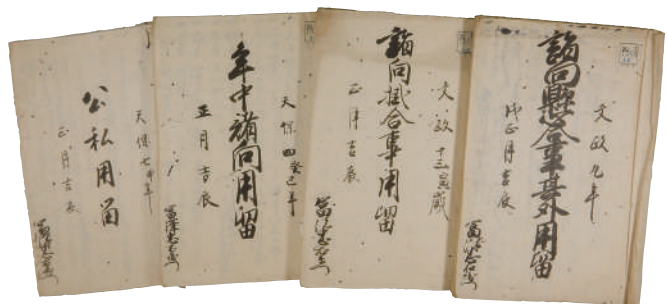 文政九年
諸向懸合并其外用留
戌正月吉辰
文政十三寅歳
諸向掛合事用留
正月吉辰
天保四癸巳年
年中諸向用留
正月吉辰
天保七申年
公私用留
正月吉辰